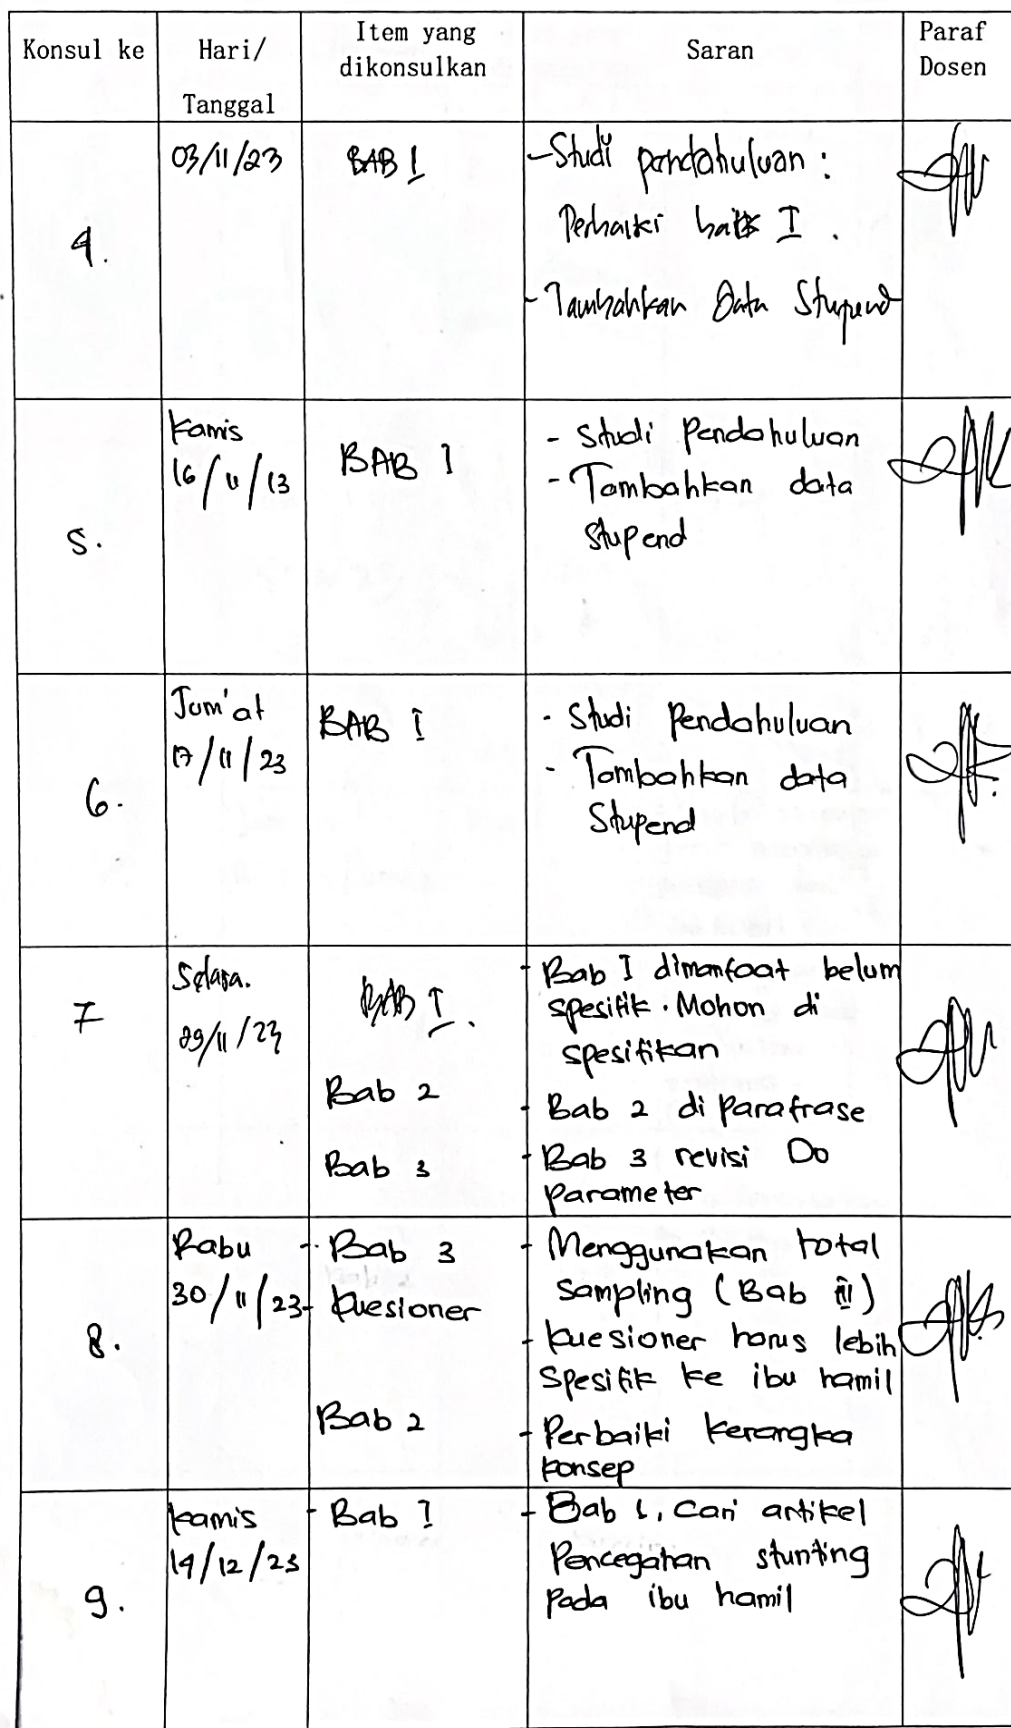 Konsul ke
Hari/
Tanggal
Item yang
dikonsulkan
Saran
Paraf
Dosen
4.
03/11/23
BAB I
- Studi pendahuluan :
Perbaiki I .
- Tambahkan Data Stupend
5.
Kamis
16/11/13
BAB I
- Studi Pendahuluan
- Tambahkan data
Stupend
6.
Jum'at
17/11/23
BAB I
- Studi Pendahuluan
- Tambahkan data
Stupend
7
Selasa.
29/11/23
BAB I.
Bab 2
Bab 3
- Bab I dimanfaat belum
spesifik. Mohon di
spesifikan
- Bab 2 di Parafrase
- Bab 3 revisi Do
Parameter
8.
Rabu
30/11/23
- Bab 3
- kuesioner
Bab 2
- Menggunakan total
Sampling (Bab III)
- kuesioner harus lebih
Spesifik ke ibu hamil
- Perbaiki kerangka
konsep
9.
kamis
14/12/23
- Bab I
- Bab 1, Cari artikel
Pencegahan stunting
Pada ibu hamil